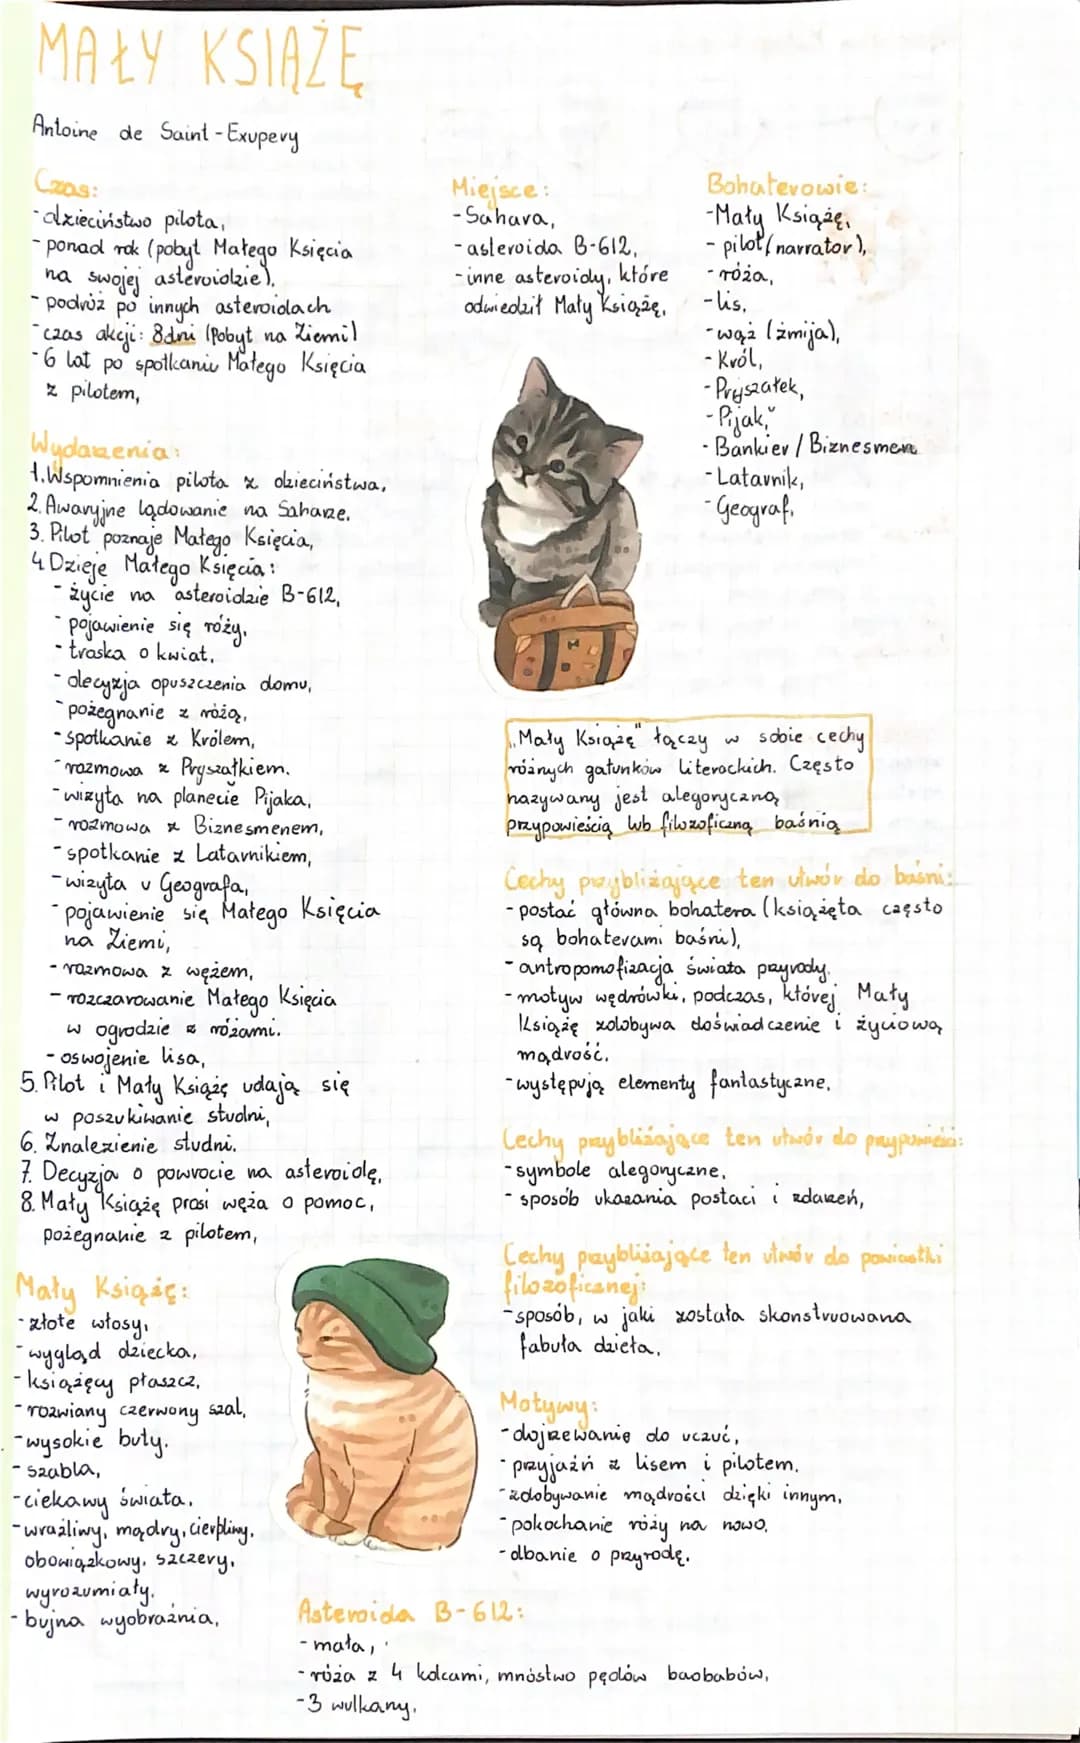 MAŁY KSIĄŻĘ
Antoine de Saint-Exupery
Czas:
- dzieciństwo pilota,
- ponad rok (pobyt Małego Księcia
na swojej asteroidzie).
- podróż po innych asteroidach
- czas akcji: 8 dni (Pobyt na Ziemi)
- 6 lat po spotkaniu Małego Księcia
z pilotem,
Miejsce:
- Sahara,
- asteroida B-612,
- inne asteroidy, które
odwiedził Mały Książę,
Bohaterowie:
- Mały Książę,
- pilot (narrator),
- róża,
- lis,
- wąż (żmija),
- Król,
- Pryszałek,
- Pijak,
- Bankier / Biznesmen
- Latarnik,
- Geograf,
Wydarzenia:
1. Wspomnienia pilota z dzieciństwa,
2. Awaryjne lądowanie na Saharze.
3. Pilot poznaje Małego Księcia,
4. Dzieje Małego Księcia:
- życie na asteroidzie B-612,
- pojawienie się róży,
- troska o kwiat,
- decyzja opuszczenia domu,
- pożegnanie z różą,
- spotkanie z Królem,
- rozmowa z Pryszałkiem.
- wizyta na planecie Pijaka,
- rozmowa z Biznesmenem,
- spotkanie z Latarnikiem,
- wizyta u Geografa,
- pojawienie się Małego Księcia
na Ziemi,
- rozmowa z wężem,
- rozczarowanie Małego Księcia
w ogrodzie z różami.
- oswojenie lisa,
5. Pilot i Mały Książę udają się
w poszukiwanie studni,
6. Znalezienie studni.
7. Decyzja o powrocie na asteroidę,
8. Mały Książę prosi węża o pomoc,
pożegnanie z pilotem,
Mały Książę:
- złote włosy,
- wygląd dziecka,
- książęcy płaszcz,
- rozwiany czerwony szal,
- wysokie buty.
- szabla,
- ciekawy świata,
- wrażliwy, mądry, cierpliwy,
obowiązkowy, szczery,
wyrozumiały.
- bujna wyobraźnia,
„Mały Książę" łączy w sobie cechy
różnych gatunków literackich. Często
nazywany jest alegoryczną
przypowieścią lub filozoficzną baśnią
Cechy przybliżające ten utwór do baśni:
- postać główna bohatera (książęta często
są bohaterami baśni),
- antropomofizacja świata przyrody.
- motyw wędrówki, podczas, której Mały
Książę zdobywa doświadczenie i życiową
mądrość.
- występują elementy fantastyczne,
Cechy przybliżające ten utwór do przypowieści:
- symbole alegoryczne,
- sposób ukazania postaci i zdarzeń,
Cechy przybliżające ten utwór do powiastki
filozoficznej:
- sposób, w jaki została skonstruowana
fabuła dzieła,
Motywy:
- dojrzewanie do uczuć,
- przyjaźń z lisem i pilotem.
- zdobywanie mądrości dzięki innym,
- pokochanie róży na nowo,
- dbanie o przyrodę.
Asteroida B-612:
- mała,
- róża z 4 kolcami, mnóstwo pędów baobabów,
- 3 wulkany.